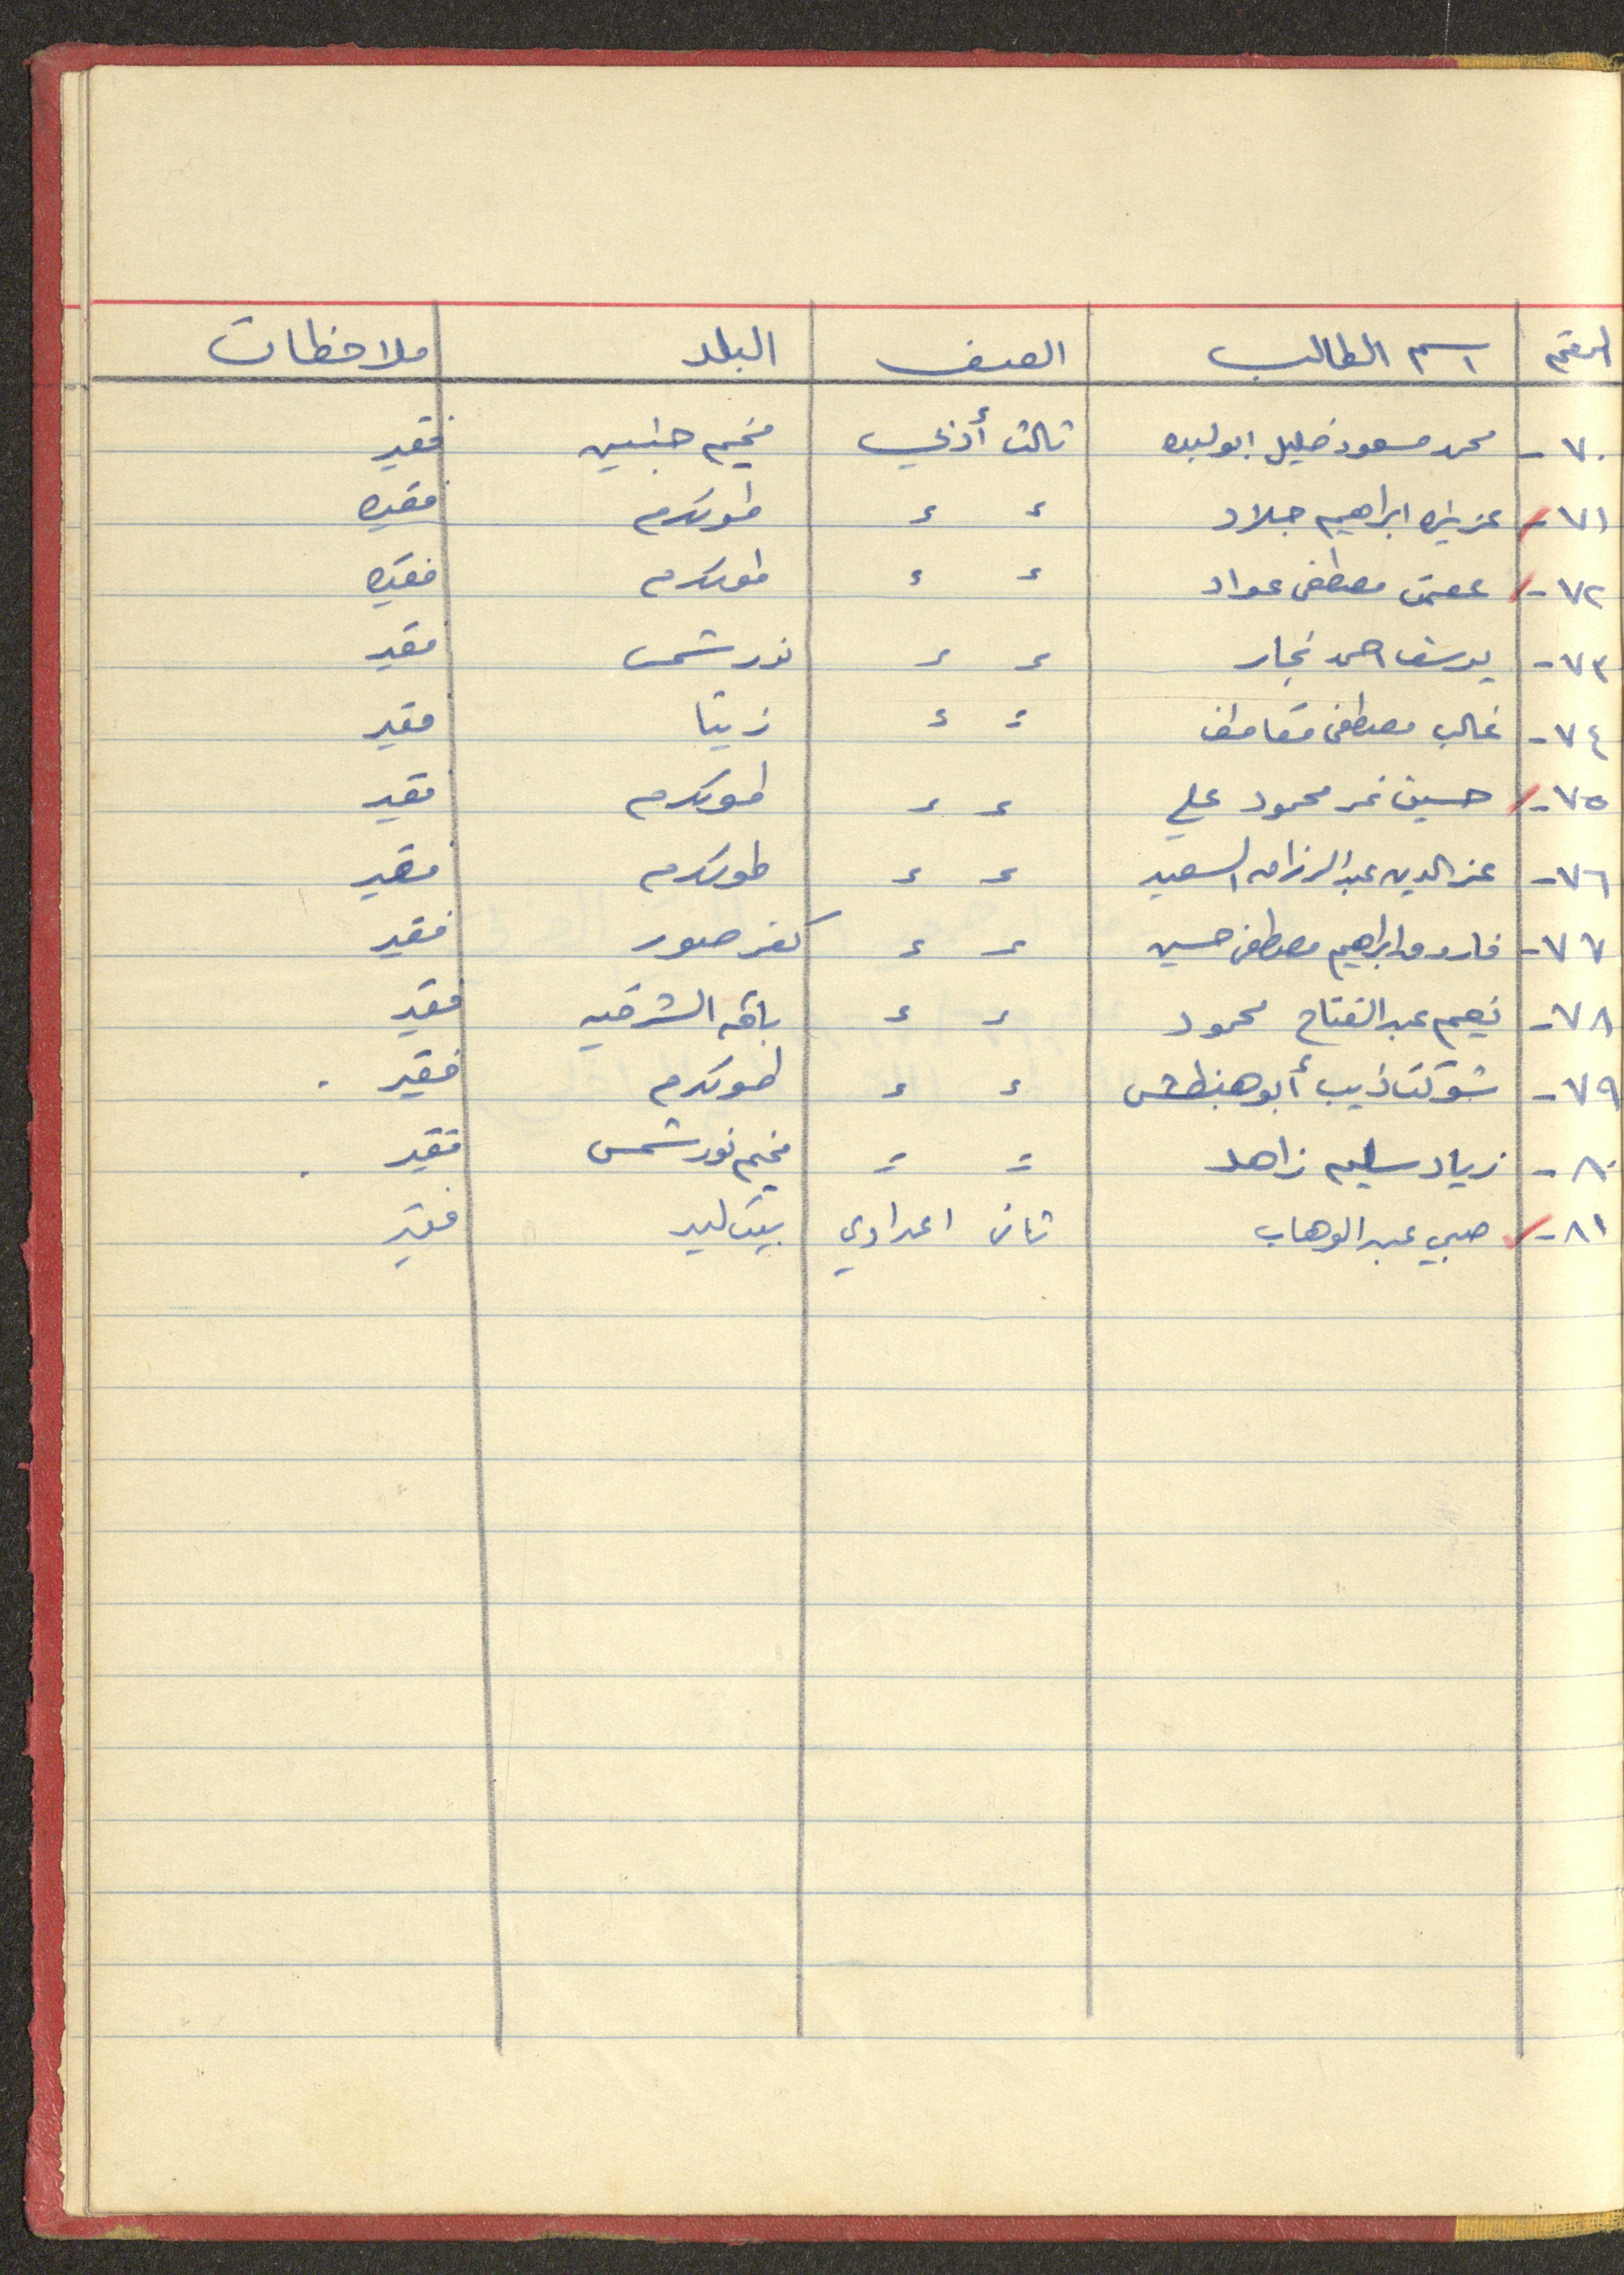 الرقم اسم الطالب الصف البلد ملاحظات
٧٠- محمد مسعود خليل ابو لبده ثالث أدبي مخيم جنين فقير
٧١- عزيزه ابراهيم جلاد ء ء طولكرم فقيره
٧٢- عفت مصطفى عواد ء ء طولكرم فقيره
٧٣- يوسف احمد نجار ء ء نور شمس فقير
٧٤- غالب مصطفى ء ء زيتا فقير
٧٥- حسين نمر محمود علي ء ء طولكرم فقير
٧٦- عز الدين عبد الرزاق السعيد ء ء طولكرم فقير
٧٧- فاروق ابراهيم مصطفى حسين ء ء كفر صور فقير
٧٨- نعيم عبد الفتاح محمود ء ء باقه الشرقيه فقير
٧٩- شوكت ذيب أبو هنطش ء ء طولكرم فقير .
٨٠- زياد سليم زاهد = = مخيم نور شمس فقير .
٨١- صبحي عبد الوهاب ثاني اعدادي بيت ليد فقير